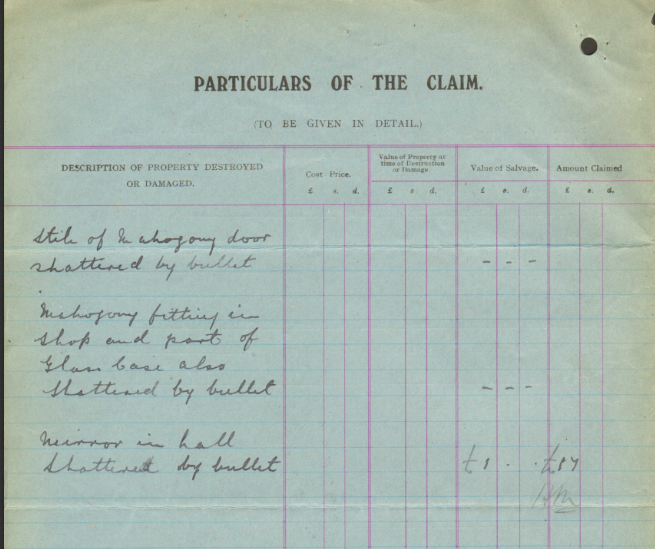 PARTICULARS OF THE CLAIM.
(TO BE GIVEN IN DETAIL.)
DESCRIPTION OF PROPERTY DESTROYED OR DAMAGED.
Cost Price.
£ s. d.
Value of Property at time of Destruction or Damage.
£ s d.
Value of Salvage.
£ s. d.
Amount Claimed
£ s. d.
Stile of Mahogony door
shattered by bullet - - -
Mahogony fitting in
shop and part of
Glass Case also
Shattered by bullet - - -
Mirror in hall
Shattered by bullet £1 . .